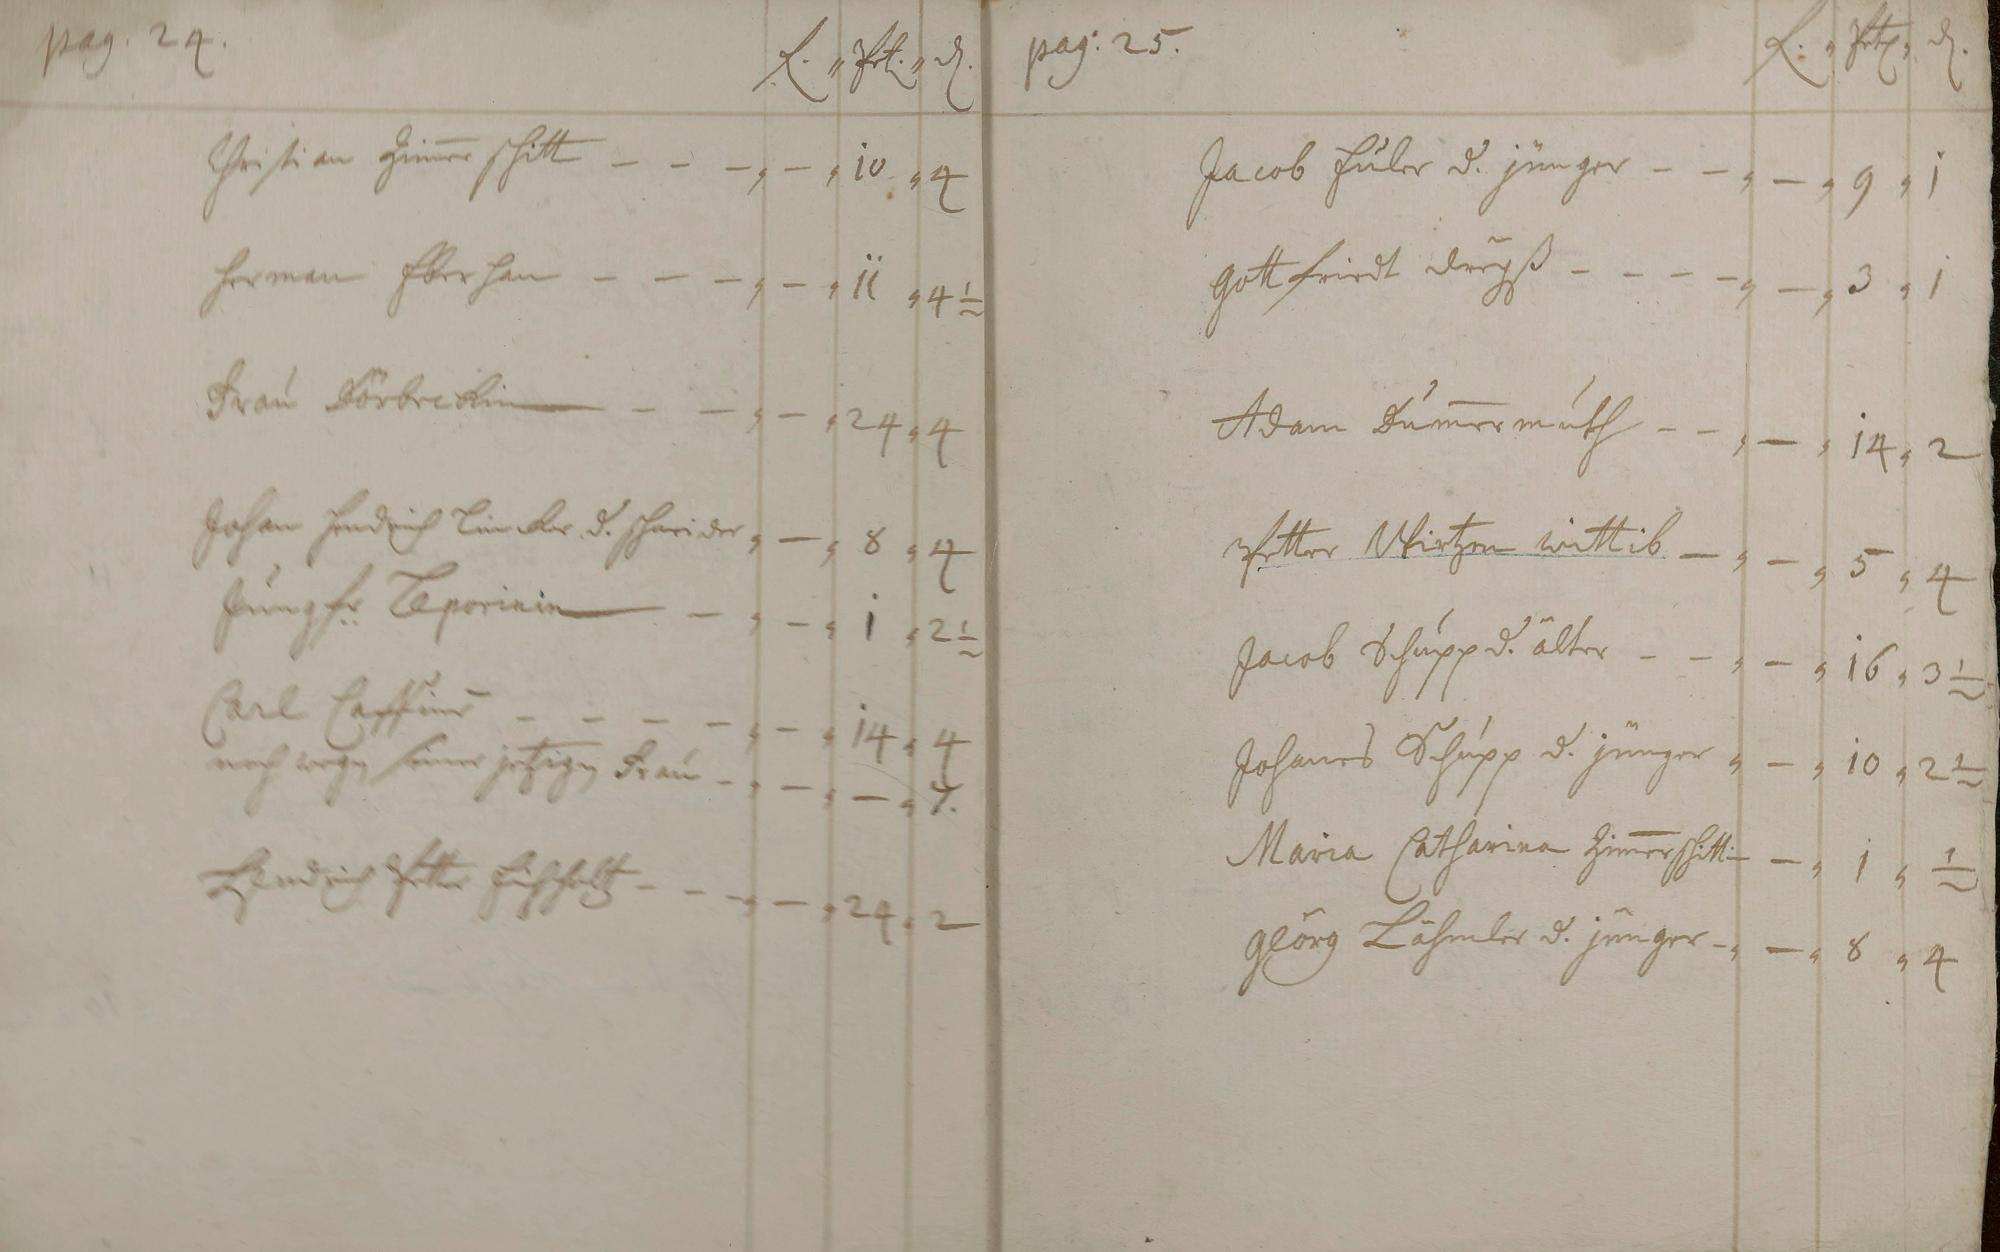 pag. 24.
Christian Zim̅erschitt — — — „ — „ 10 „ 4
Herman Eberhan — — — „ — „ 11 „ 4 ½
Frau Dörbreckin — — „ — „ 24 „ 4
Johan Hendrich Lincker d. schneider „ — „ 8 „ 4
Jungfr. — „ — „ 1 „ 2 ½
Carl — — — — „ — „ 14 „ 4
noch wegen seiner jetzigen Frau — „ — „ — „ 7.
Hendrich Petter Eichholtz — — — „ — „ 24 „ 2
pag: 25.
Jacob Euler d. jünger — — „ — „ 9 „ 1
Gottfriedt — — — — „ — „ 3 „ 1
Adam Dum̅ermuth — — „ — „ 14 „ 2
Petter Wirtzen wittib — „ — „ 5 „ 4
Jacob Schupp d. älter — — „ — „ 16 „ 3 ½
Johanes Schupp d. jünger „ — „ 10 „ 2 ½
Maria Catharina Zim̅erschittin — „ 1 „ ½
Georg Löhmler d. jünger — „ — „ 8 „ 4